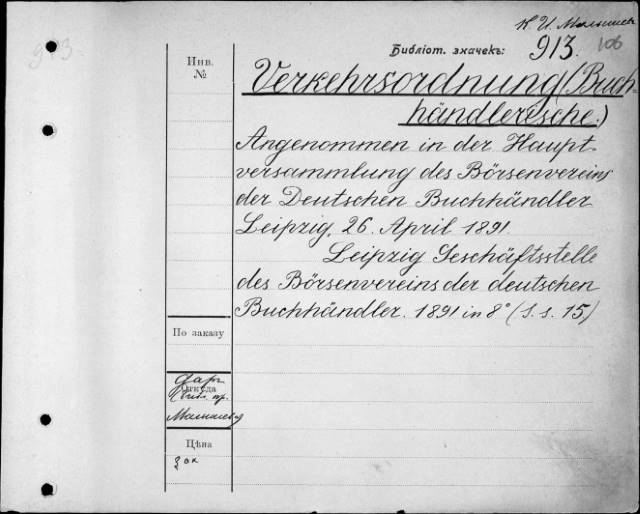 К И. Малышев
913.
Библіот. значекъ: 913. 106
Инв.
№
Verkehrsordnung (Buch-
händlerische.)
Angenommen in der Haupt-
versammlung des Börsenvereins
der Deutschen Buchhändler
Leipzig, 26. April 1891.
Leipzig Geschäftsstelle
des Börsenvereins der deutschen
Buchhändler. 1891 in 8° (1. s. 15.)
По заказу
Откуда
Малышева
Цѣна